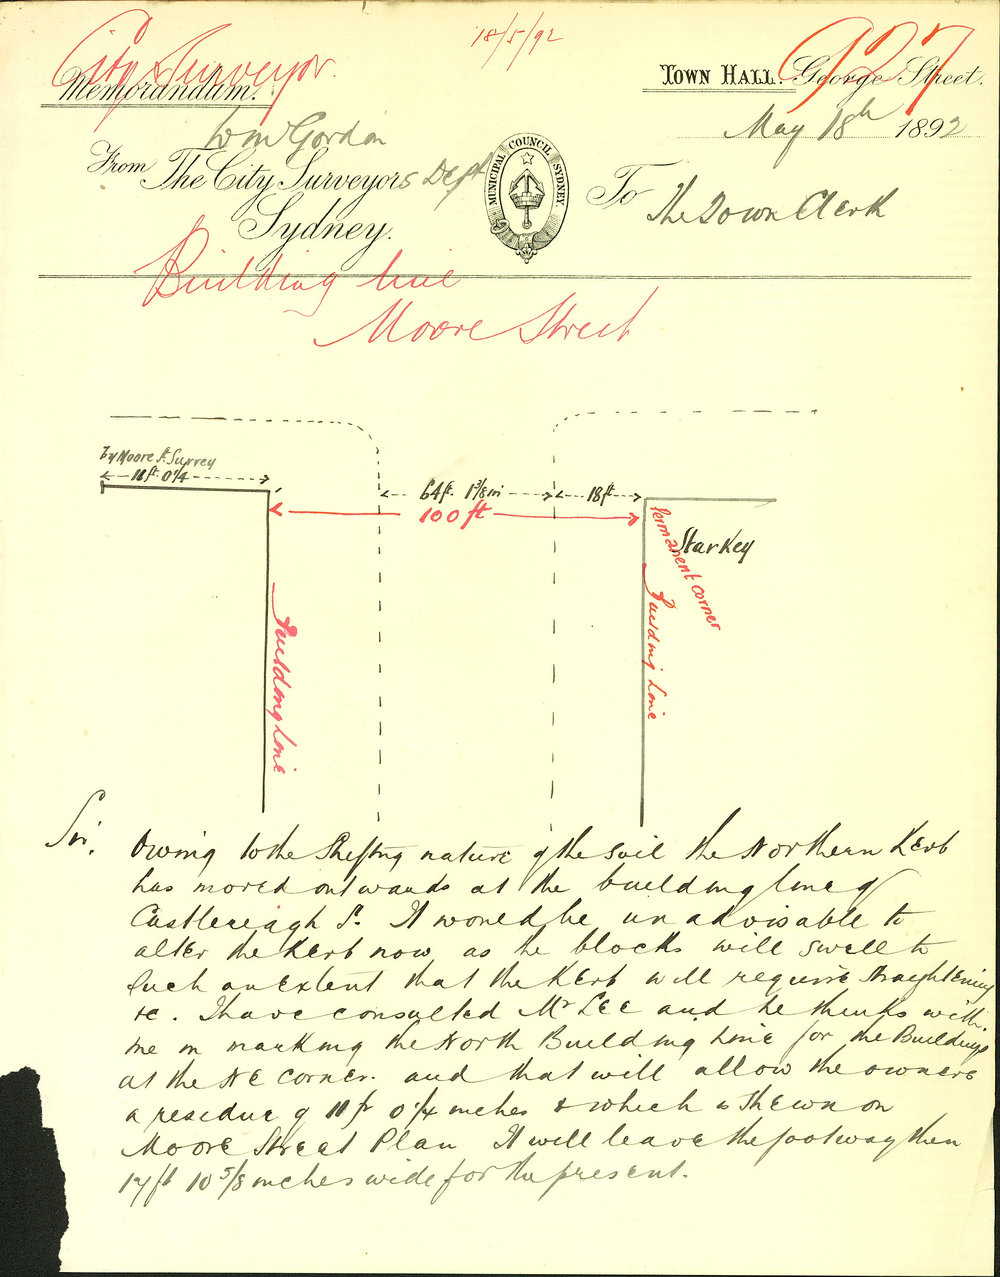 18/5/92
927
City Surveyor.
Memorandum.
TOWN HALL. George Street.
May 18th 1892
Wm Gordon
From The City Surveyors Dept
Sydney.
MUNICIPAL COUNCIL SYDNEY
To The Town Clerk
Building line
Moore Street
by Moore St. Survey
11 ft. 0 1/4
64 ft. 1 3/8 in
18 ft
100 ft
Permanent corner
Starkey
Building Line
Building Line
Sir,
Owing to the Shifting nature of the soil the Northern Kerb
has moved outwards at the building line of
Castlereagh St. It would be unadvisable to
alter the Kerb now as the blocks will swell to
such an extent that the Kerb will require straightening
&c. I have consulted Mr Lee and he thinks with
me in marking the North Building Line for the Buildings
at the NE corner. and that will allow the owners
a residue of 11 ft 0 1/4 inches & which is shewn on
Moore Street Plan It will leave the footway then
17 ft 10 5/8 inches wide for the present.